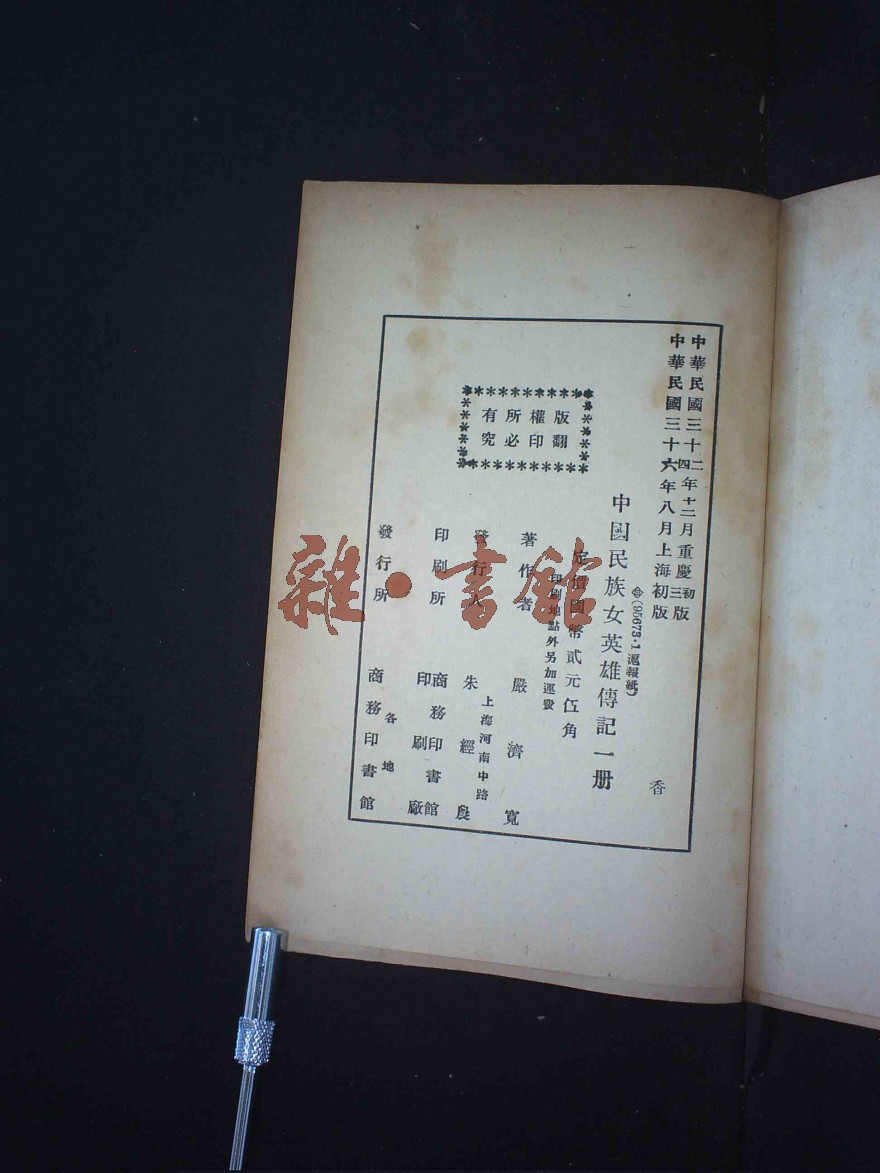 中華民國三十二四年十二月重慶初三版
中華民國三十六年八月上海初版
(95673·1滬報紙)
中國民族女英雄傳記一册
定價國幣貳元伍角
印刷地點外另加運費
版權所有
翻印必究
著作者 嚴濟寬
上海河南中路
發行人 朱經農
印刷所 商務印書館
印刷廠
各地
發行所 商務印書館
香
雜·書館